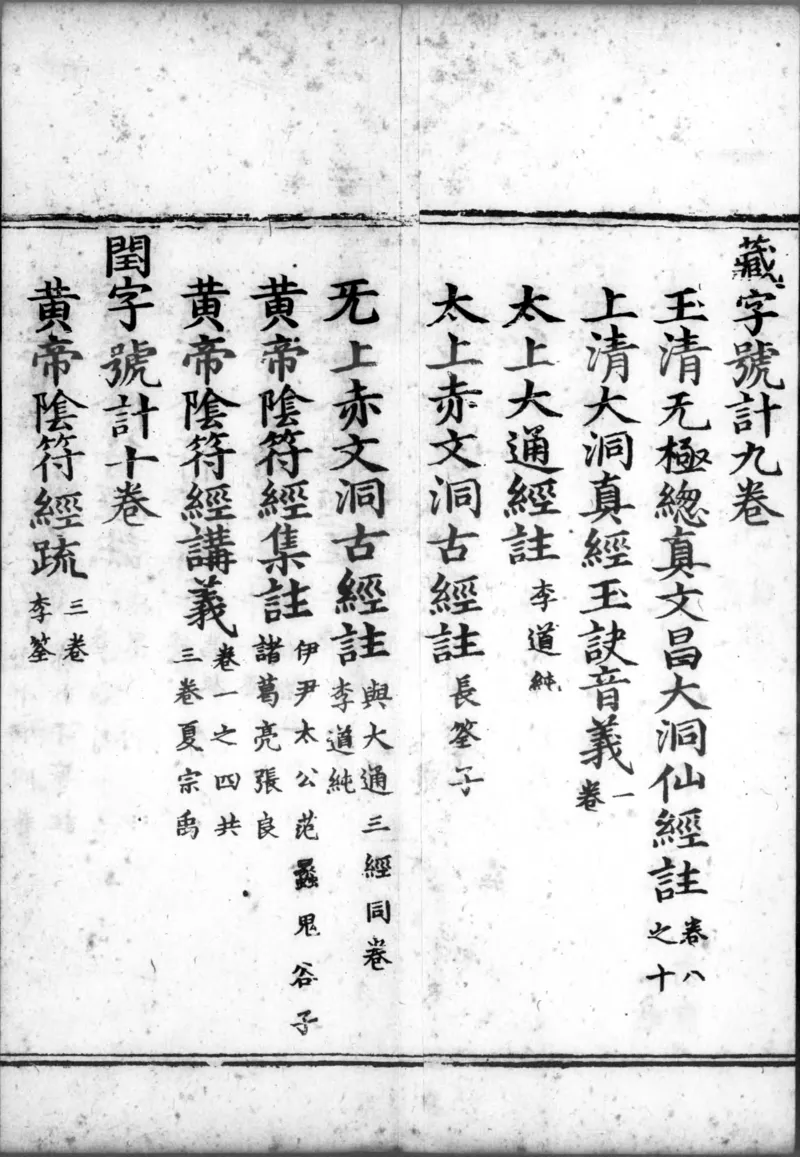 藏字號計九卷
玉清无極總真文昌大洞仙經註 卷八之十
上清大洞真經玉訣音義 一卷
太上大通經註 李道純
太上赤文洞古經註 長筌子
无上赤文洞古經註 與大通三經同卷 李道純
黄帝陰符經集註 伊尹太公范蠡鬼谷子 諸葛亮張良
黄帝陰符經講義 卷一之四共三卷夏宗禹
閏字號計十卷
黄帝陰符經疏 三卷 李筌